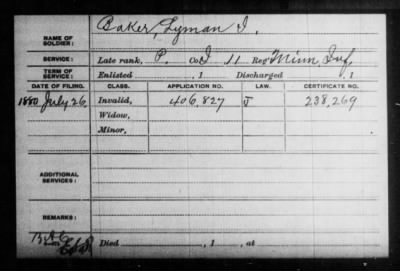 NAME OF SOLDIER: Baker, Lyman I.
SERVICE: Late rank, P. Co. I 11 Reg't Minn. Inf.
TERM OF SERVICE: Enlisted , 1 Discharged , 1
DATE OF FILING. CLASS. APPLICATION NO. LAW. CERTIFICATE NO.
1880 July 26 Invalid, 406,827 J 238,269
Widow,
Minor,
ADDITIONAL SERVICES:
REMARKS:
Died , 1 , at